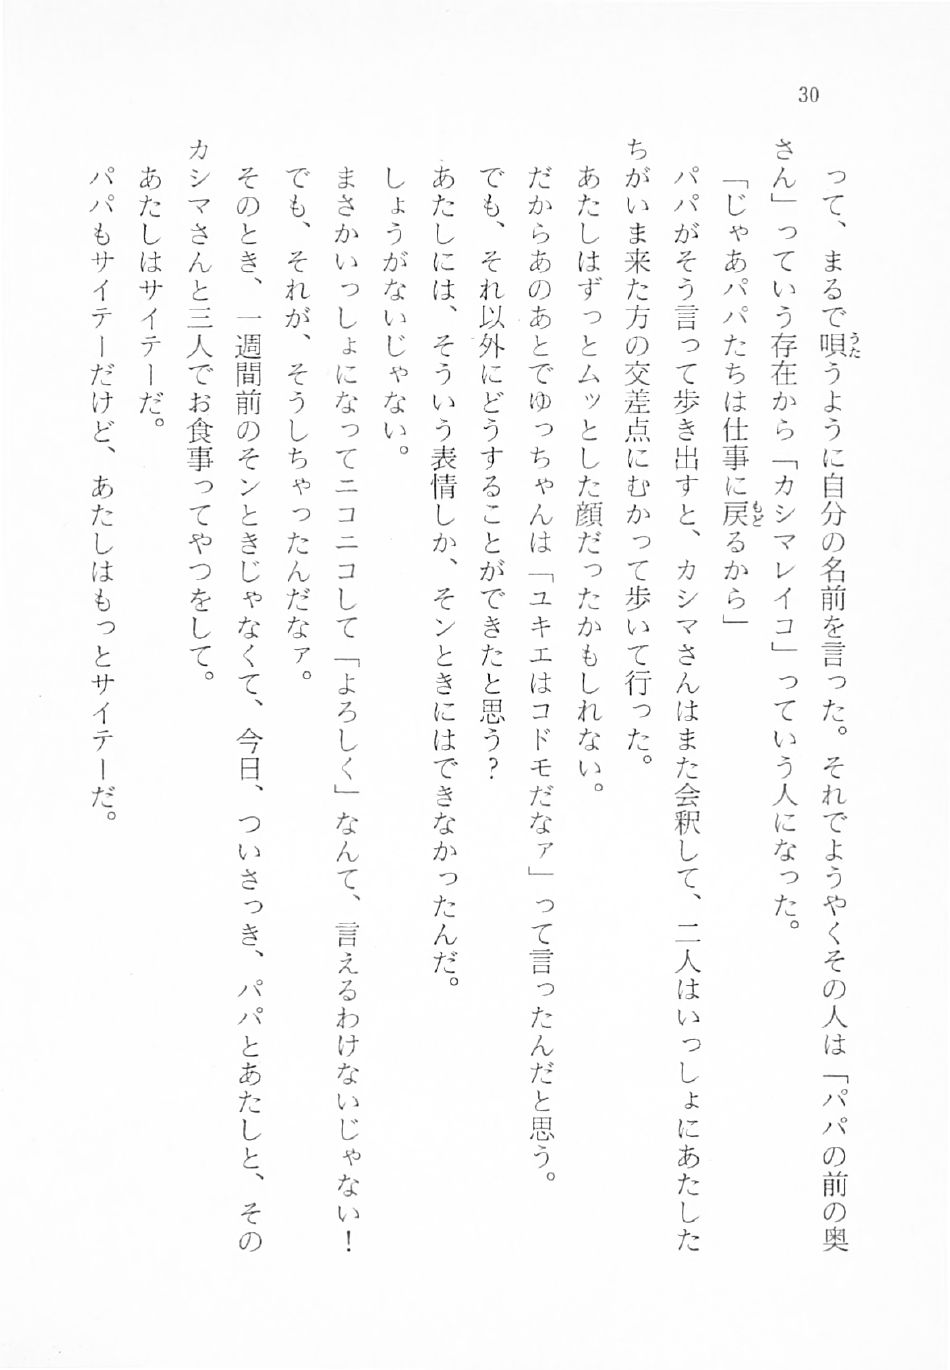 30
って、まるで唄うように自分の名前を言った。それでようやくその人は「パパの前の奥
さん」っていう存在から「カシマレイコ」っていう人になった。
「じゃあパパたちは仕事に戻るから」
パパがそう言って歩き出すと、カシマさんはまた会釈して、二人はいっしょにあたした
ちがいま来た方の交差点にむかって歩いて行った。
あたしはずっとムッとした顔だったかもしれない。
だからあのあとでゆっちゃんは「ユキエはコドモだなァ」って言ったんだと思う。
でも、それ以外にどうすることができたと思う？
あたしには、そういう表情しか、そンときにはできなかったんだ。
しょうがないじゃない。
まさかいっしょになってニコニコして「よろしく」なんて、言えるわけないじゃない！
でも、それが、そうしちゃったんだなァ。
そのとき、一週間前のそンときじゃなくて、今日、ついさっき、パパとあたしと、その
カシマさんと三人でお食事ってやつをして。
あたしはサイテーだ。
パパもサイテーだけど、あたしはもっとサイテーだ。